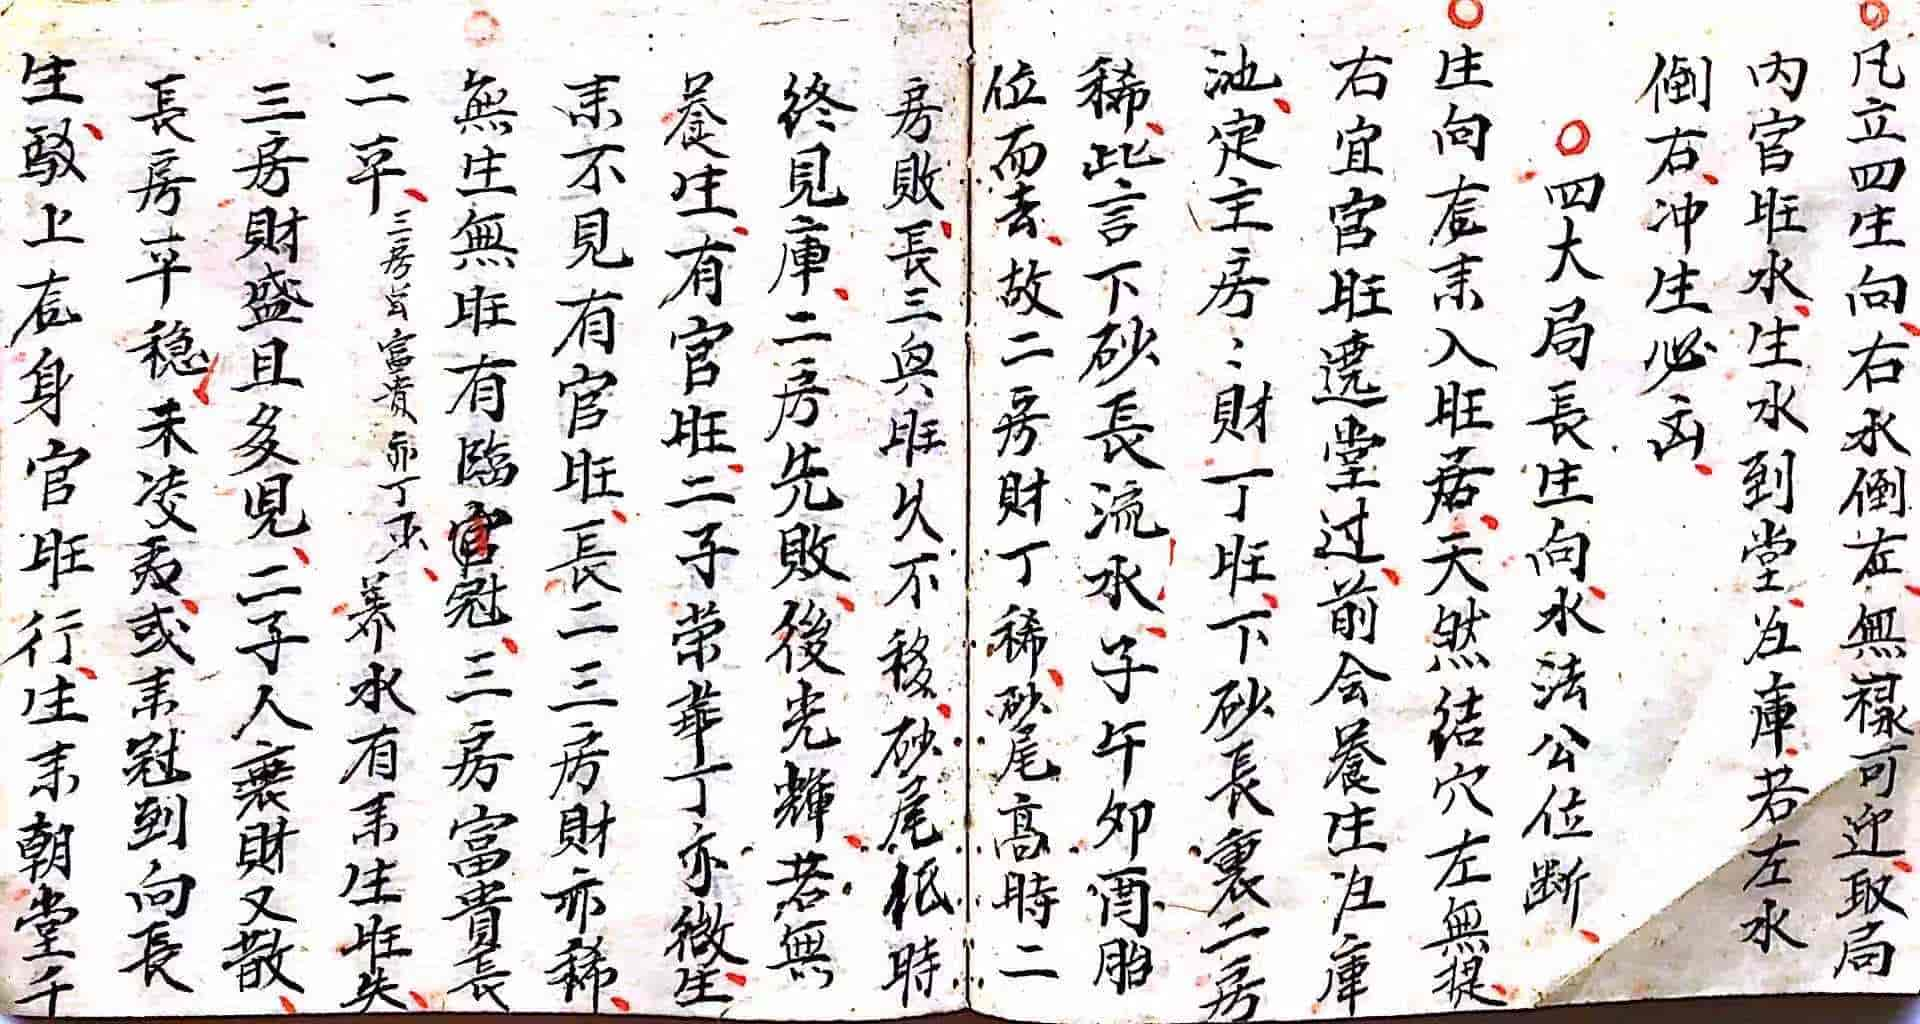 凡立四生向右水倒左無祿可迎取局
內官旺水生水到堂㱕庫若左水
倒右冲生必凶
四大局長生向水法公位斷
生向㡯來入旺居天然結穴左無提
右宜官旺遶堂过前会養生㱕庫
池定主房〻財丁旺下砂長裏二房
稀此言下砂長流水子午卯酉胎
位而去故二房財丁稀砂尾高時二
房敗長三與旺久不移砂尾低時
終見庫二房先敗後光輝若無
養生有官旺二子荣華丁亦微生
來不見有官旺長二三房財亦稀
無生無旺有臨官冠三房富貴長
二平三房曾富貴亦丁不養水有來生旺失
三房財盛且多児二子人衰財又散
長房平稳未凌夷或來冠到向長
生敗上㡯身官旺行生來朝堂千